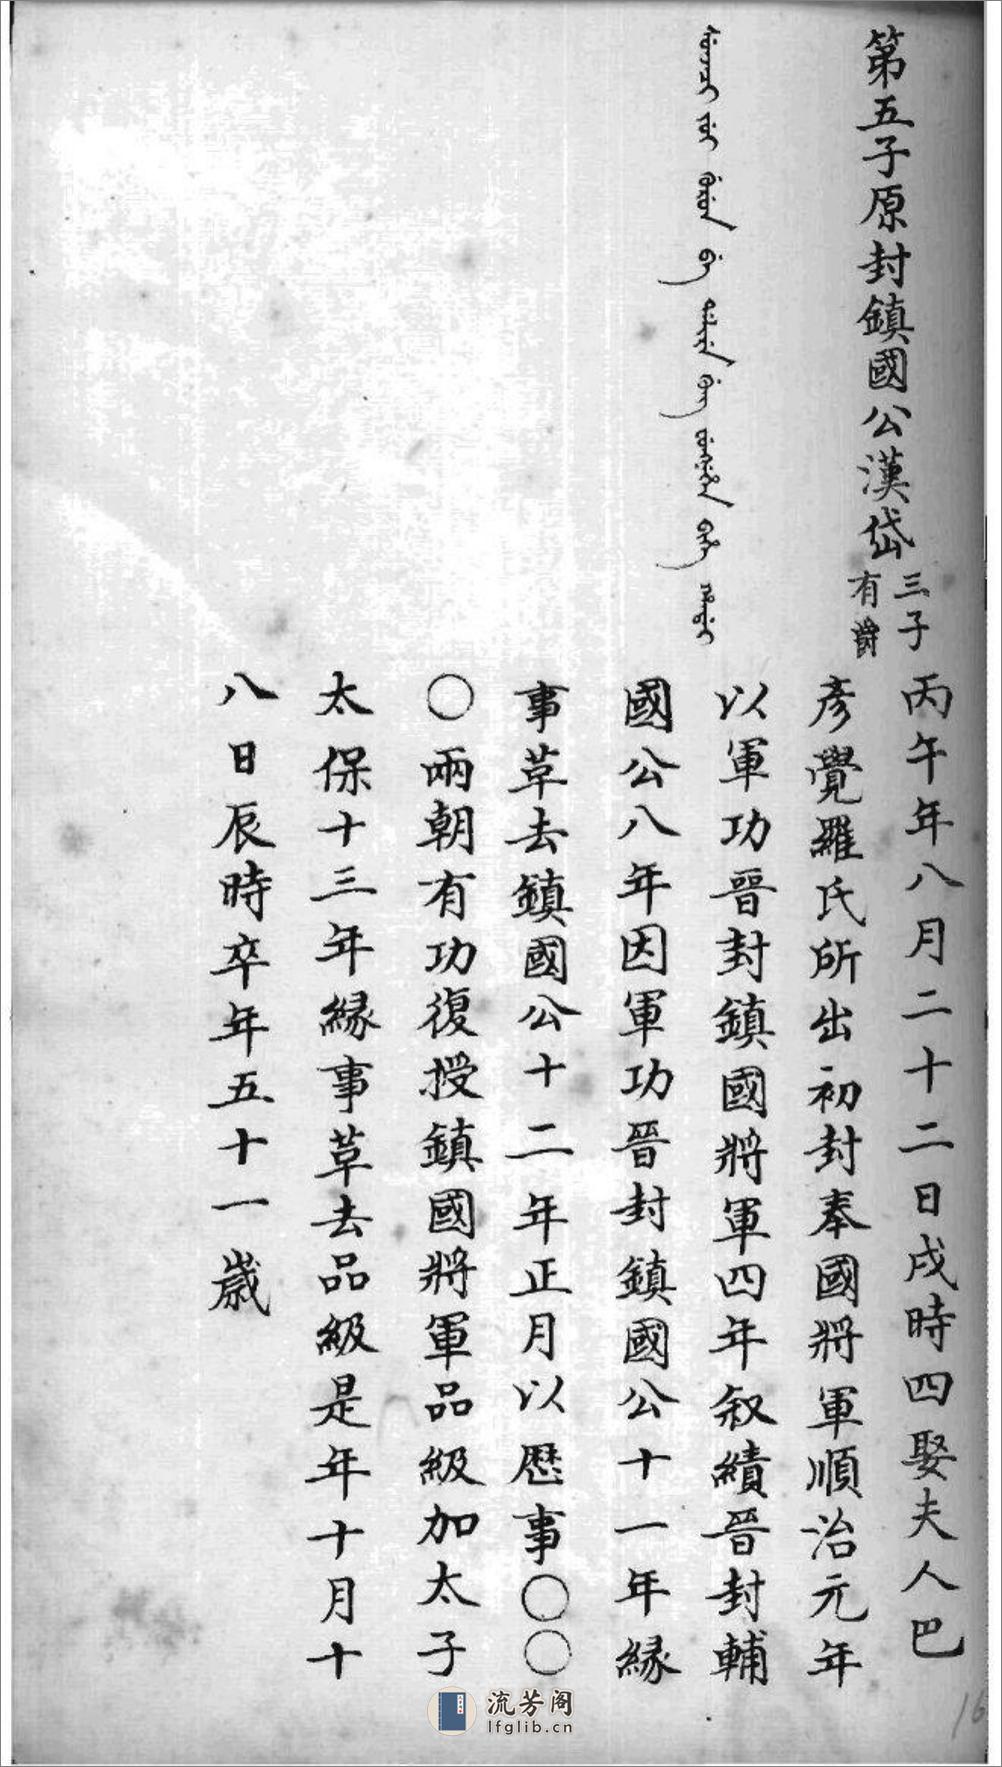 第五子原封鎮國公漢岱
三子
有爵
丙午年八月二十二日戌時四娶夫人巴
彥覺羅氏所出初封奉國將軍順治元年
以軍功晉封鎮國將軍四年敘績晉封輔
國公八年因軍功晉封鎮國公十一年緣
事革去鎮國公十二年正月以歷事〇〇
〇兩朝有功復授鎮國將軍品級加太子
太保十三年緣事革去品級是年十月十
八日辰時卒年五十一歲
流芳阁
lfglib.cn